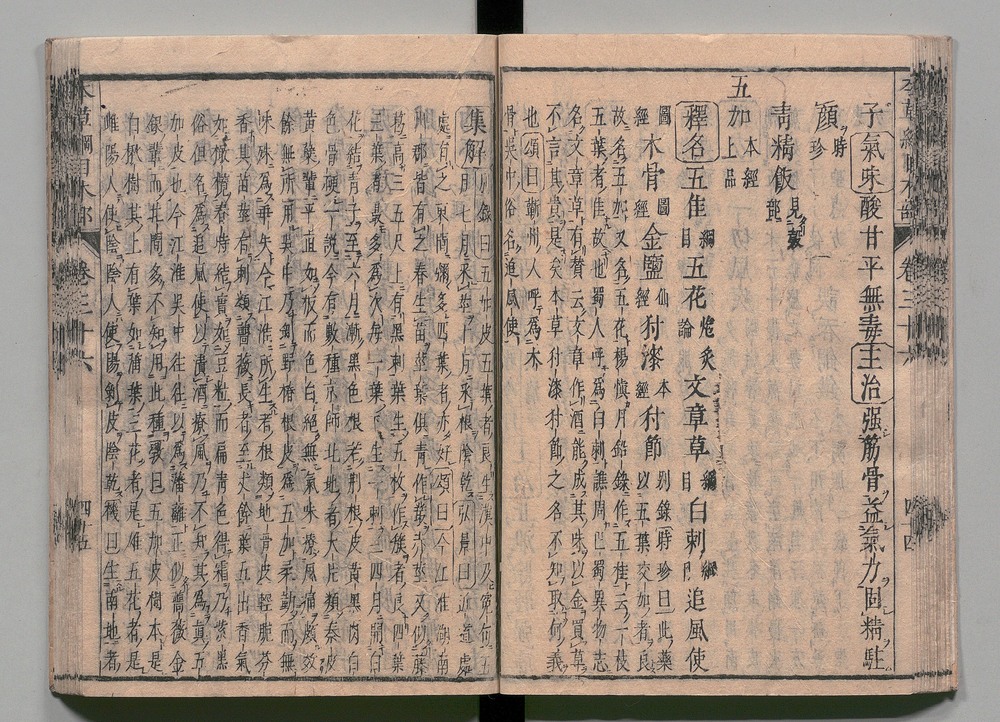 子氣味酸甘平無毒主治強筋骨益氣力固精駐
顏時珍
青精飯見穀部
五加本經上品
釋名五佳綱目五花炮炙論文章草綱目白刺綱目追風使
圖經木骨圖經金鹽仙經豺漆本經豺節別錄時珍曰此藥以五葉交加者良
故名五加又名五花楊慎丹鉛錄作五佳云一枝
五葉者佳故也蜀人呼為白刺譙周巴蜀異物志
名文章草有贊云文章作酒能成其味以金買草
不言其貴是矣本草豺漆豺節之名不知取何義
也頌曰蘄州人呼為木
骨吳中俗名追風使
集解別錄曰五加皮五葉者良生漢中及冤句五
月七月采莖十月采根陰乾弘景曰近道處
處有之東間彌多四葉者亦好頌曰今江淮湖南
州郡皆有之春生苗莖葉俱青作叢赤莖又似藤
葛高三五尺上有黑刺葉生五枚作簇者良四葉
三葉者最多為次每一葉下生一刺三四月開白
花結青子至六月漸黑色根若荊根皮黃黑肉白
色骨硬一說今有數種京師北地者大片類秦皮
黃蘗輩平直如板而色白絕無氣味療風痛頗效
餘無所用吳中乃剝野椿根皮為五加柔韌而無
味殊為乖失今江淮所生者根類地骨皮輕脆芬
香其苗莖有刺類薔薇長者至丈餘葉五出香氣
如橄欖春時結實如豆粒而扁青色得霜乃紫黑
俗但名為追風使以漬酒療風乃不知其為真五
加皮也今江淮吳中往往以為藩籬正似薔薇金
櫻輩而其間多不知用此種斅曰五加皮樹本是
白楸樹其上有葉如蒲葉三花者是雄五花者是
雌陽人使陰陰人使陽剝皮陰乾機曰生南地者
本草綱目木部 卷三十六 四十五